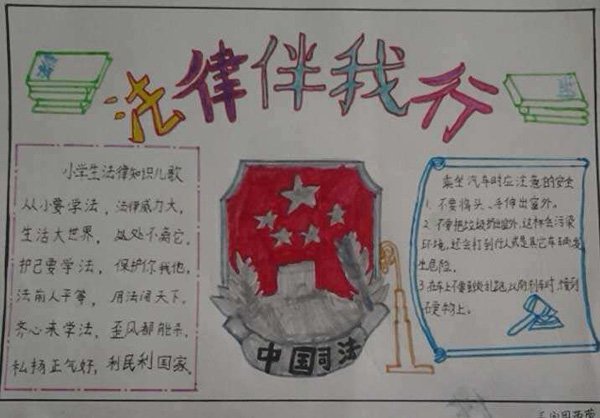 法律伴我行
小学生法律知识儿歌
从小要学法，法律威力大，
生活大世界，处处不离它。
护己要学法，保护你我他，
法前人平等，用法闯天下。
齐心来学法，歪风都能杀，
私扬正气好，利民利国家。
中国司法
乘坐汽车时应注意的安全
1. 不要将头、手伸出窗外。
2. 不要把垃圾扔出窗外，这样会污染
环境，还会打到行人或是其它车辆发
生危险。
3. 在车上不要乱跑，以防刹车时，撞到
硬物上。